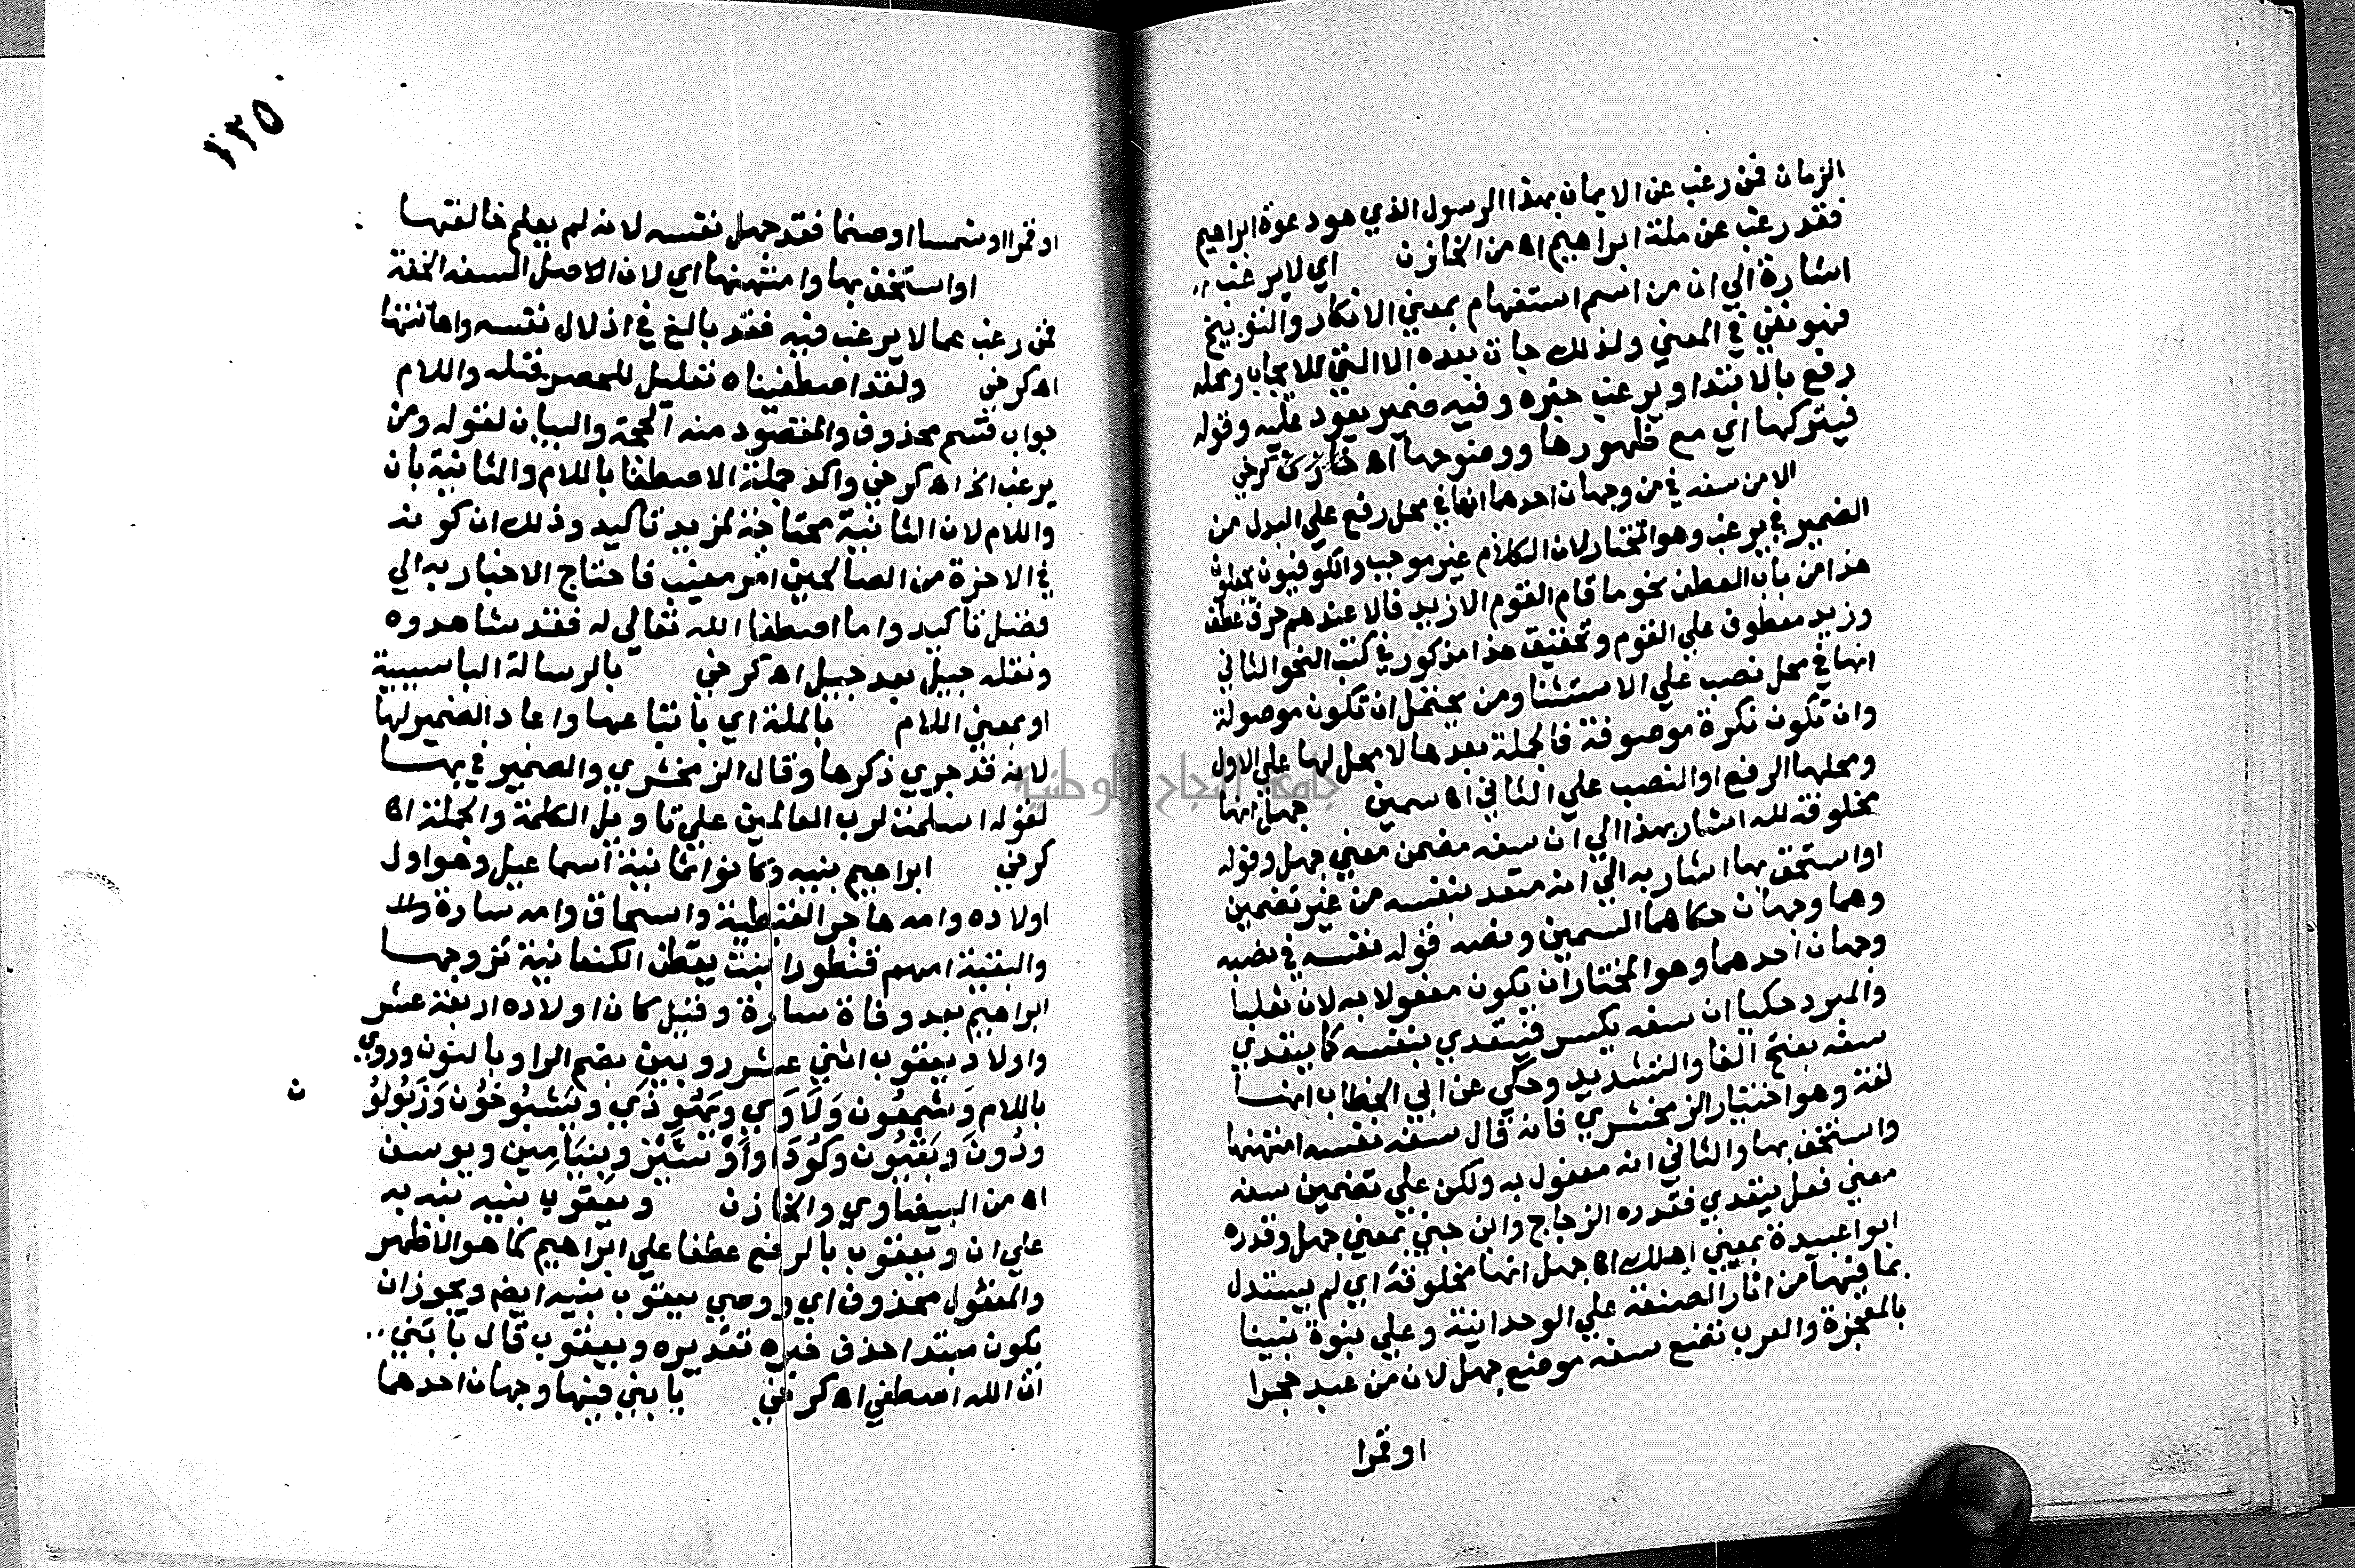 الزمان فمن رغب عن الايمان بهذا الرسول الذي هو دعوة ابراهيم
فقد رغب عن ملة ابراهيم اه من الخازن اي لا يرغب
اشارة الي ان من اسم استفهام بمعني الانكار والتوبيخ
فهو نفي في المعني ولذلك جات بعده الا التي للايجاب ومحله
رفع بالابتدا ويرغب خبره وفيه ضمير يعود عليه وقوله
فيتركها اي مع ظهورها ووضوحها اه كرخي
الا من سفه في من وجهان احدهما انها في محل رفع علي البدل من
الضمير في يرغب وهو المختار لان الكلام غير موجب والكوفيون يجعلون
هذا من باب العطف نحو ما قام القوم الا زيد فالا عندهم حرف عطف
وزيد معطوف علي القوم وتحقيق هذا مذكور في كتب النحو الثاني
انها في محل نصب علي الاستثنا ومن يحتمل ان تكون موصولة
وان تكون نكرة موصوفة فالجملة بعدها لا محل لها علي الاول
ومحلها الرفع او النصب علي الثاني اه سمين جهل انها
مخلوقة لله اشار بهذا الي ان سفه مضمن معني جهل وقوله
او استخف بها اشار به الي انه متعد بنفسه من غير تضمين
وهما وجهان حكاهما السمين ونصه قوله نفسه في نصبه
وجهان احدهما وهو المختار ان يكون مفعولا به لان ثعلبا
والمبرد حكيا ان سفه بكسر فيتعدي بنفسه كما يتعدي
سفه بفتح الفا والتشديد وحكي عن ابي الخطاب انها
لغة وهو اختيار الزمخشري فانه قال سفه نفسه امتهنها
واستخف بها والثاني انه مفعول به ولكن علي تضمين سفه
معني فعل يتعدي فقدره الزجاج وابن جني بمعني جهل وقدره
ابو اعبيدة بمعني اهلك اه جهل انها مخلوقة اي لم يستدل
بما فيها من اثار الصنعة علي الوحدانية وعلي نبوة نبينا
بالمعجزة والعرب تضع سفه موضع جهل لان من عبد حجرا
او قمرا
١٣٥
او قمرا او شمسا او صنما فقد جهل نفسه لانه لم يعلم خالقها
او استخف بها وامتهنها اي لان الاصل السفه الخفة
فمن رغب عما لا يرغب فيه فقد بالغ في اذلال نفسه واهانتها
اه كرخي ولقد اصطفيناه تعليل للحصر قبله واللام
جواب قسم محذوف والمقصود منه الحجة والبيان لقوله ومن
يرغب الخ اه كرخي واكد جملة الاصطفا باللام والثانية بان
واللام لان الثانية محتاجة لمزيد تاكيد وذلك ان كونه
في الاخرة من الصالحين امر مغيب فاحتاج الاخبار به الي
فضل تاكيد واما اصطفا الله تعالي له فقد شاهدوه
ونقله جيل بعد جيل اه كرخي بالرسالة البا سببية
او بمعني اللام بالملة اي باتباعها واعاد الضمير لها
لانه قد جري ذكرها وقال الزمخشري والضمير في بها
لقوله اسلمت لرب العالمين علي تاويل الكلمة والجملة اه
كرخي ابراهيم بنيه وكانوا ثمانية اسماعيل وهو اول
اولاده وامه هاجر القبطية واسحاق وامه سارة
والبقية امهم قنطورا بنت يقطن الكنعانية تزوجها
ابراهيم بعد وفاة سارة وقيل كان اولاده اربعة عشر
واولاد يعقوب اثني عشر روبين بضم الرا وبالنون وروي
باللام وَشَمعُون وَلَاوَي وَيَهُوذَي وَيَشبُوخُون وَزَبُولُو
ن
ودُونَ وَبَقْيُون وكَودَا وَاَوْشَيْز وبنيَامِين ويوسف
اه من البيضاوي والخازن ويعقوب بنيه نبه به
علي ان ويعقوب بالرفع عطفا علي ابراهيم كما هو الاظهر
والمفعول محذوف اي ووصي يعقوب بنيه ايضم ويجوز ان
يكون مبتدا حذف خبره تقديره ويعقوب قال يا بني
ان الله اصطفي اه كرخي يا بني فيها وجهان احدهما
جامعة النجاح الوطنية